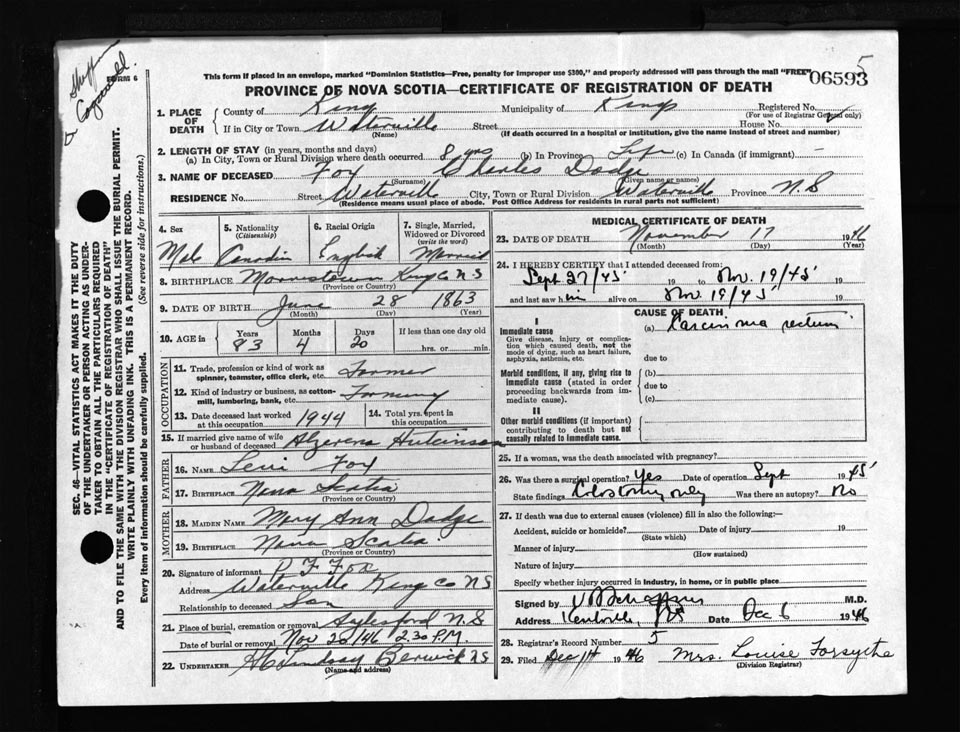 Sheffman
Cogswell.
FORM 6
5
This form if placed in an envelope, marked "Dominion Statistics—Free, penalty for improper use $300," and properly addressed will pass through the mail "FREE"
06593
PROVINCE OF NOVA SCOTIA—CERTIFICATE OF REGISTRATION OF DEATH
1. PLACE OF DEATH County of Kings Municipality of Kings Registered No.
(For use of Registrar General only)
If in City or Town Waterville Street House No.
(Name) (If death occurred in a hospital or institution, give the name instead of street and number)
2. LENGTH OF STAY (in years, months and days)
(a) In City, Town or Rural Division where death occurred 8 yrs (b) In Province Life (c) In Canada (if immigrant) —
3. NAME OF DECEASED Fox Charles Dodge
(Surname) (Given name or names)
RESIDENCE No. Street Waterville City, Town or Rural Division Waterville Province N.S
(Residence means usual place of abode. Post Office Address for residents in rural parts not sufficient)
4. Sex Male
5. Nationality (Citizenship) Canadin
6. Racial Origin English
7. Single, Married, Widowed or Divorced (write the word) Married
8. BIRTHPLACE Morristown Kings Co N S
(Province or Country)
9. DATE OF BIRTH June 28 1863
(Month) (Day) (Year)
10. AGE in Years 83 Months 4 Days 20 If less than one day old hrs. or min.
OCCUPATION
11. Trade, profession or kind of work as spinner, teamster, office clerk, etc. Farmer
12. Kind of industry or business, as cotton-mill, lumbering, bank, etc. Farming
13. Date deceased last worked at this occupation 1944
14. Total yrs. spent in this occupation
15. If married give name of wife or husband of deceased Alzerena Hutcinson
FATHER
16. NAME Levi Fox
17. BIRTHPLACE Nova Scotia
(Province or Country)
MOTHER
18. MAIDEN NAME Mary Ann Dodge
19. BIRTHPLACE Nova Scotia
(Province or Country)
20. Signature of informant P F Fox
Address Waterville Kings Co NS
Relationship to deceased Son
21. Place of burial, cremation or removal Aylesford N.S
Date of burial or removal Nov 20/46 2.30 P.M.
22. UNDERTAKER Lindsay Berwick N S
(Name and address)
MEDICAL CERTIFICATE OF DEATH
23. DATE OF DEATH November 17 1946
(Month) (Day) (Year)
24. I HEREBY CERTIFY that I attended deceased from:
Sept 27/45 19 to Nov. 19/45 19
and last saw him alive on Nov. 19/45 19
CAUSE OF DEATH
I
Immediate cause (a) Carcinoma rectum
Give disease, injury or complication which caused death, not the mode of dying, such as heart failure, asphyxia, asthenia, etc.
due to
Morbid conditions, if any, giving rise to immediate cause (stated in order proceeding backwards from immediate cause).
(b)
due to
(c)
II
Other morbid conditions (if important) contributing to death but not causally related to immediate cause.
25. If a woman, was the death associated with pregnancy?
26. Was there a surgical operation? Yes Date of operation Sept 1945
State findings Colostomy only Was there an autopsy? No
27. If death was due to external causes (violence) fill in also the following:—
Accident, suicide or homicide? Date of injury 19
(State which)
Manner of injury
(How sustained)
Nature of injury
Specify whether injury occurred in industry, in home, or in public place
Signed by M.D.
Address Kentville, NS Date Dec 6 1946
28. Registrar's Record Number 5
29. Filed Dec 14 1946 Mrs. Louise Forsythe
(Division Registrar)
SEC. 46—VITAL STATISTICS ACT MAKES IT THE DUTY
OF THE UNDERTAKER OR PERSON ACTING AS UNDERTAKER
TO OBTAIN ALL THE PARTICULARS REQUIRED
IN THE "CERTIFICATE OF REGISTRATION OF DEATH"
AND TO FILE THE SAME WITH THE DIVISION REGISTRAR WHO SHALL ISSUE THE BURIAL PERMIT.
WRITE PLAINLY WITH UNFADING INK. THIS IS A PERMANENT RECORD.
Every item of information should be carefully supplied. (See reverse side for instructions.)